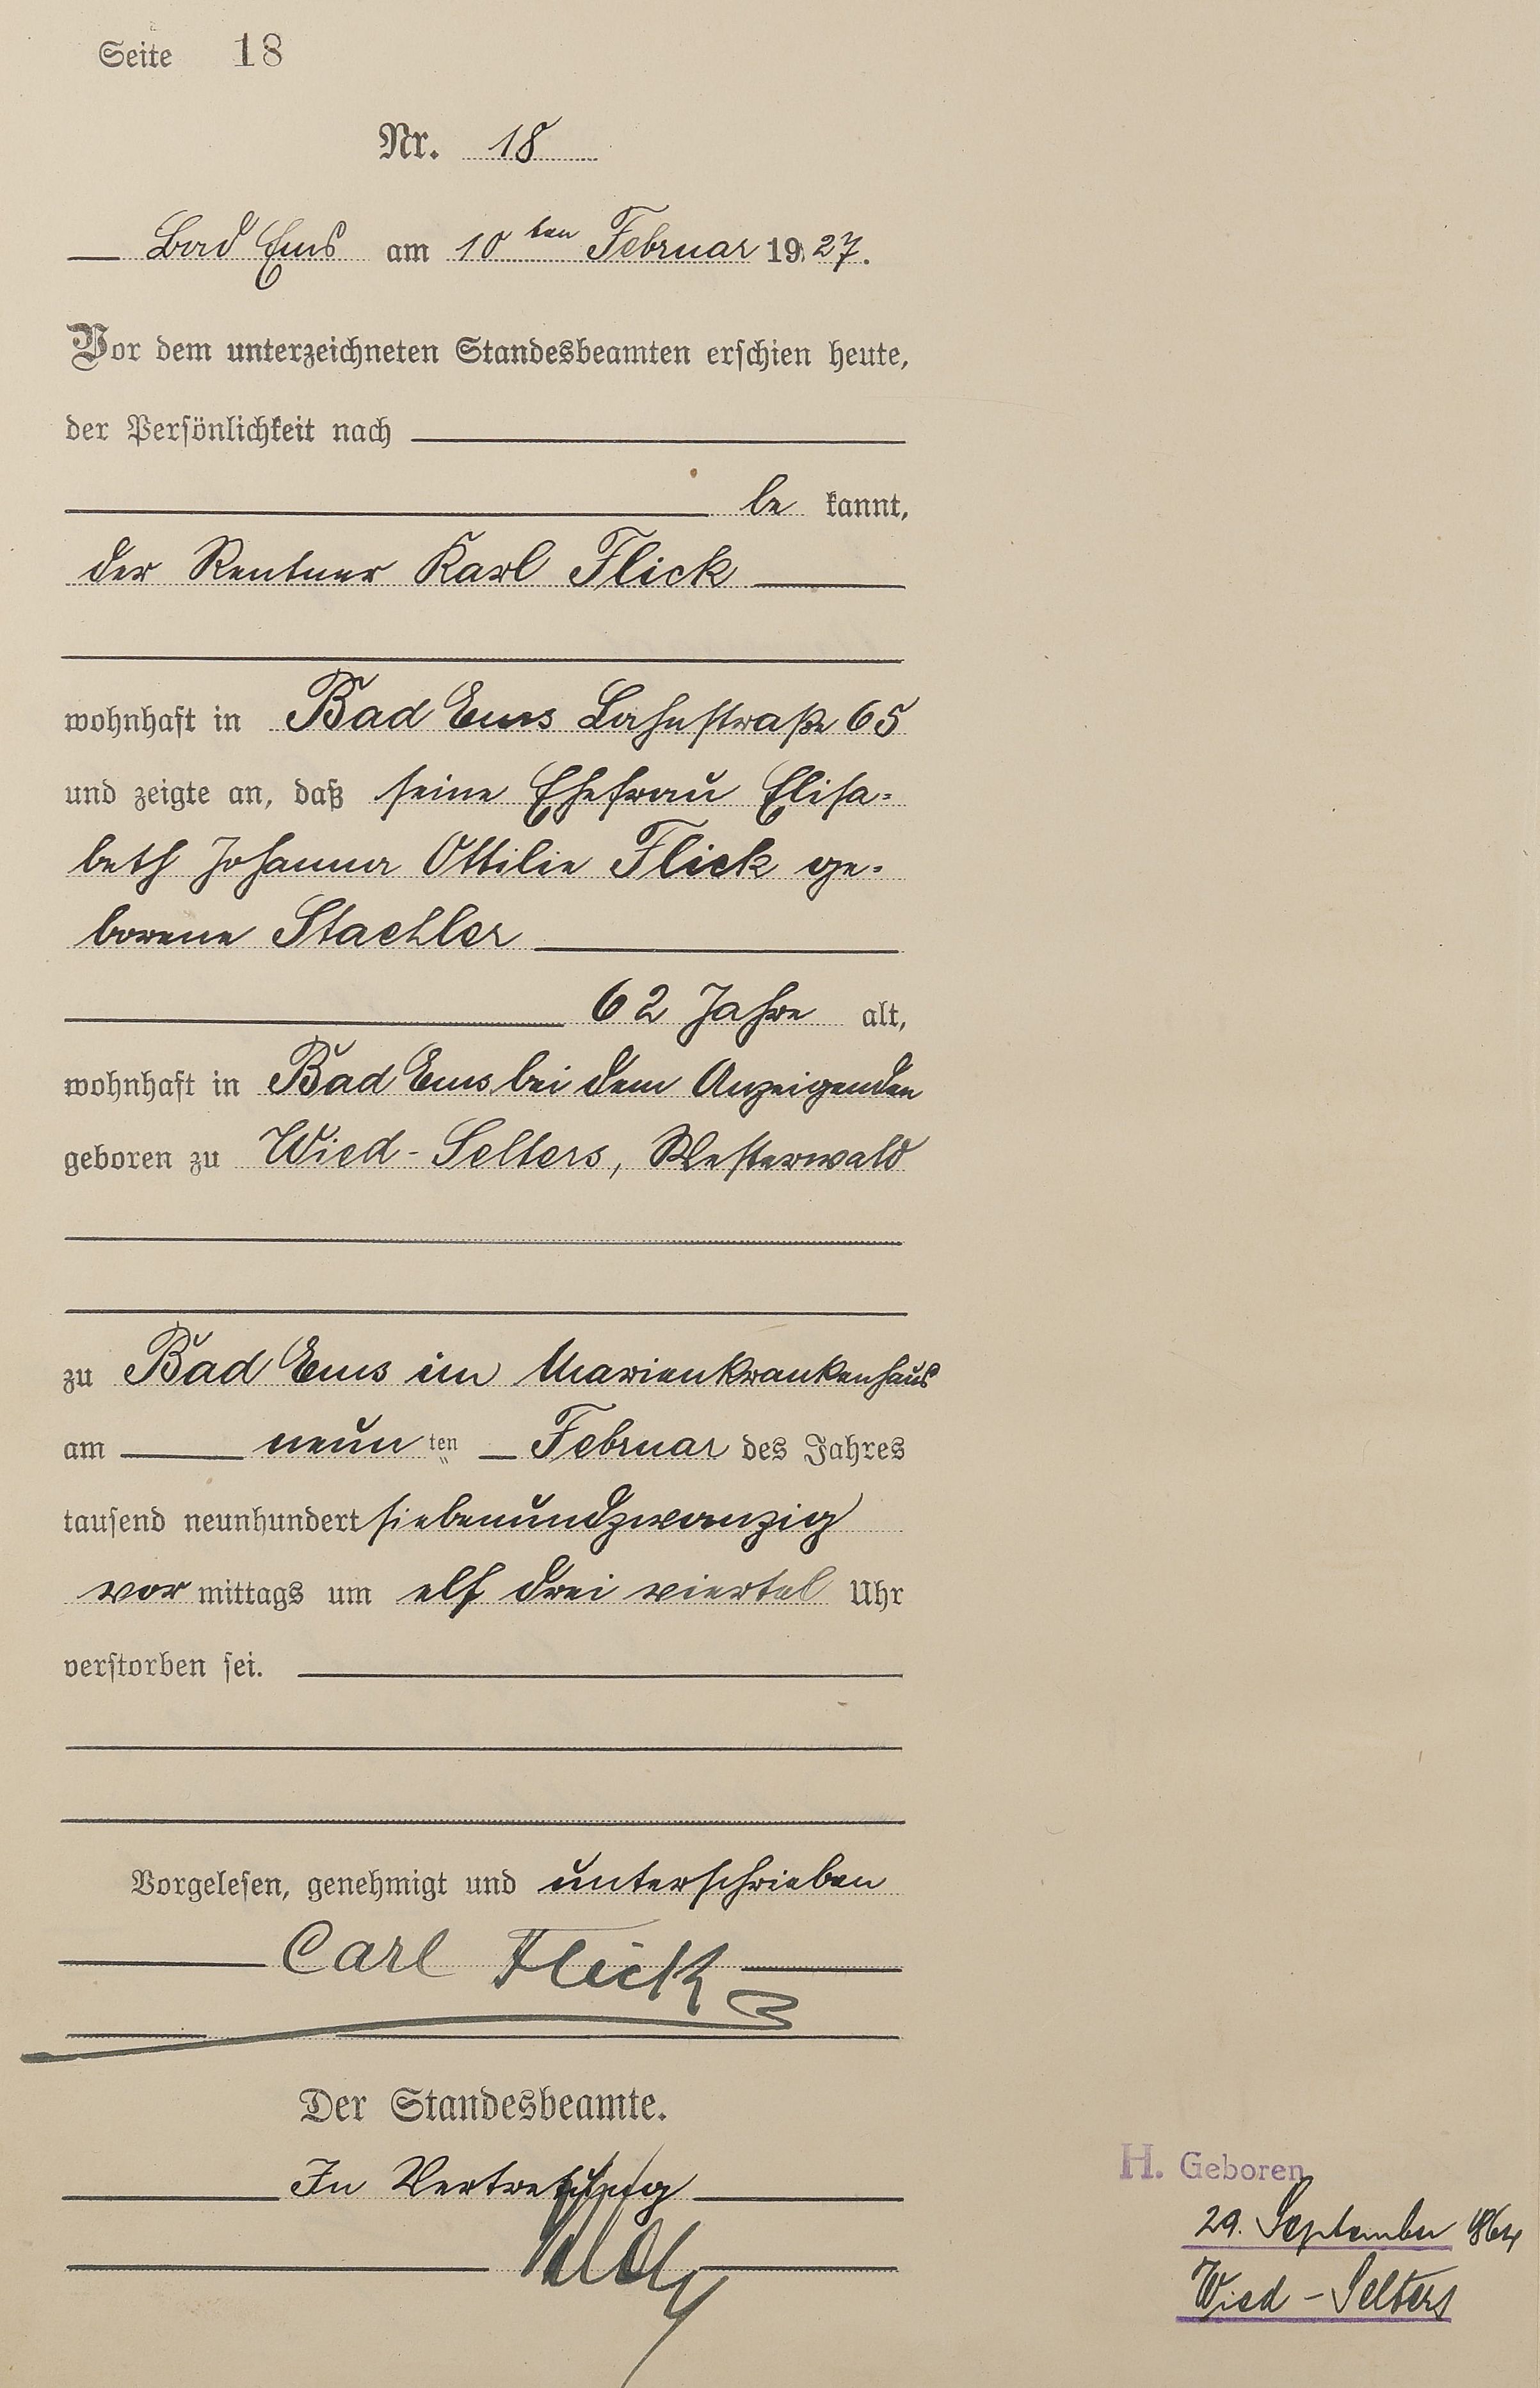 Seite 18
Nr. 18
Bad Ems am 10ten Februar 1927.
Vor dem unterzeichneten Standesbeamten erschien heute,
der Persönlichkeit nach
be kannt,
der Rentner Karl Flick
wohnhaft in Bad Ems Lahnstraße 65
und zeigte an, daß seine Ehefrau Elisa-
beth Johanna Ottilie Flick ge-
borene Staehler
62 Jahre alt,
wohnhaft in Bad Ems bei dem Anzeigenden
geboren zu Wied-Selters, Westerwald
zu Bad Ems im Marienkrankenhaus
am neun ten Februar des Jahres
tausend neunhundert siebenundzwanzig
vor mittags um elf drei viertel Uhr
verstorben sei.
Vorgelesen, genehmigt und unterschrieben
Carl Flick
Der Standesbeamte.
In Vertretung
H. Geboren
29. September 1864
Wied-Selters